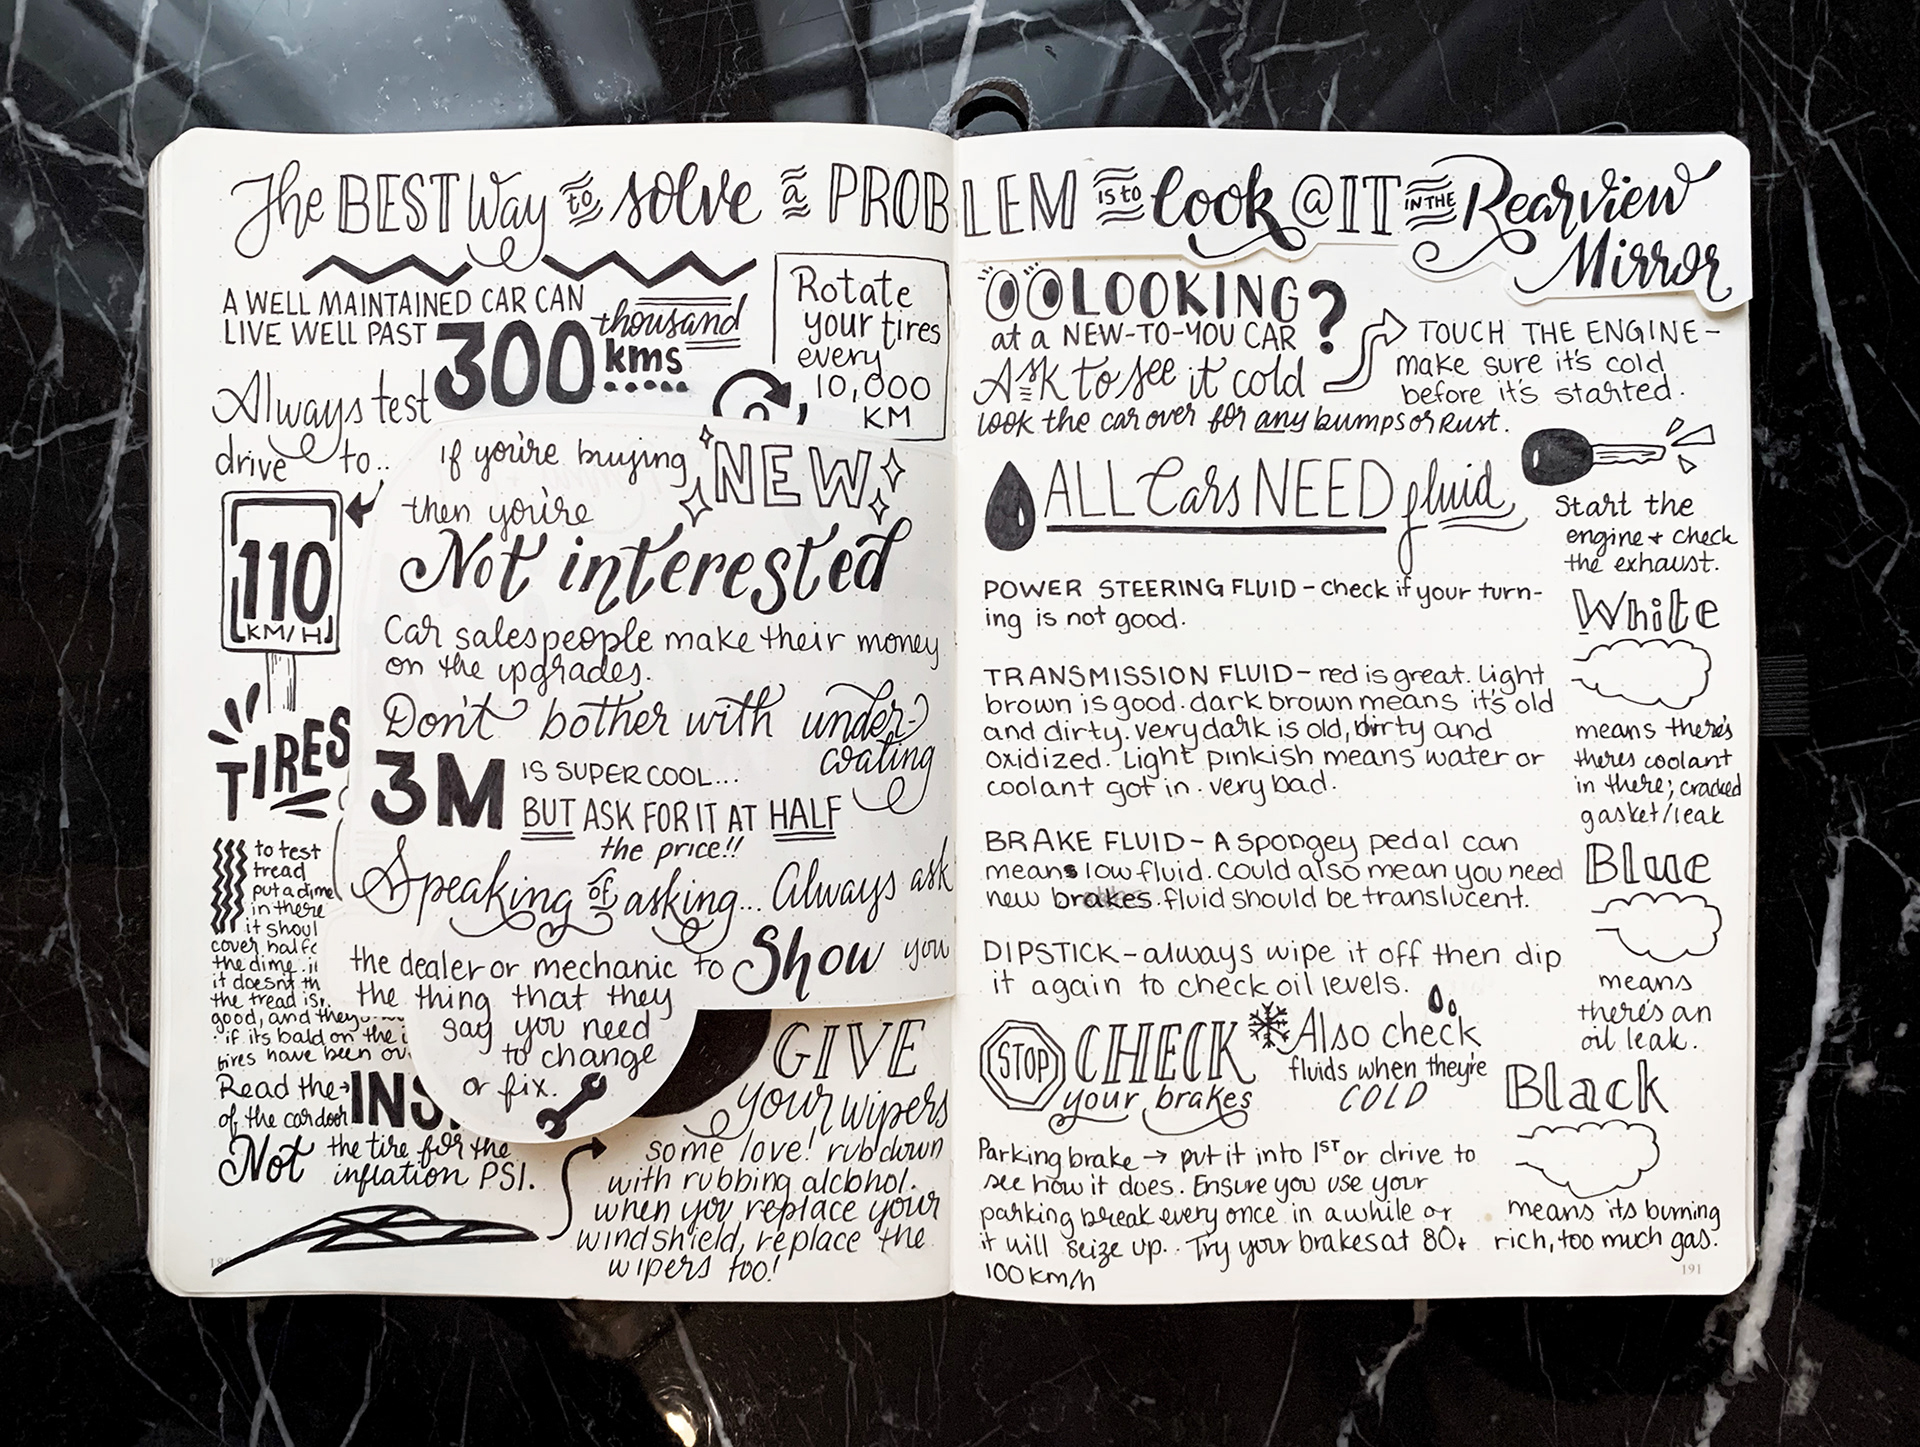 The BEST Way to solve a PROBLEM is to look @ IT IN THE Rearview
Mirror
A WELL MAINTAINED CAR CAN
LIVE WELL PAST 300 thousand
kms
Rotate
your tires
every
10,000
KM
Always test
drive to..
110
KM/H
if you're buying NEW
then you're
Not interested
Car salespeople make their money
on the upgrades.
Don't bother with under-
coating
3M IS SUPER COOL...
BUT ASK FOR IT AT HALF
the price!!
Speaking of asking... Always ask
the dealer or mechanic to Show you
the thing that they
say you need
to change
or fix.
TIRES
to test
tread
put a dime
in there
it shoul
cover half o
the dime. if
it doesn't th
the tread is,
good, and they
if its bald on the i
tires have been ov
Read the → INS
of the car door
Not the tire for the
inflation PSI.
GIVE
your wipers
some love! rub down
with rubbing alcohol.
when you replace your
windshield, replace the
wipers too!
LOOKING?
at a NEW-TO-YOU CAR
ASK to see it cold
TOUCH THE ENGINE-
make sure it's cold
before it's started.
look the car over for any bumps or Rust.
ALL Cars NEED fluid
POWER STEERING FLUID - check if your turn-
ing is not good.
TRANSMISSION FLUID - red is great. light
brown is good. dark brown means it's old
and dirty. very dark is old, dirty and
oxidized. Light pinkish means water or
coolant got in. very bad.
BRAKE FLUID - A spongey pedal can
means low fluid. Could also mean you need
new brakes. fluid should be translucent.
DIPSTICK - always wipe it off then dip
it again to check oil levels.
STOP
CHECK
your brakes
Also check
fluids when they're
COLD
Parking brake → put it into 1ST or drive to
see how it does. Ensure you use your
parking break every once in a while or
it will seize up.. Try your brakes at 80+
100 km/h
Start the
engine + check
the exhaust.
White
means there's
theres coolant
in there; cracked
gasket/leak
Blue
means
there's an
oil leak.
Black
means its burning
rich, too much gas.
191